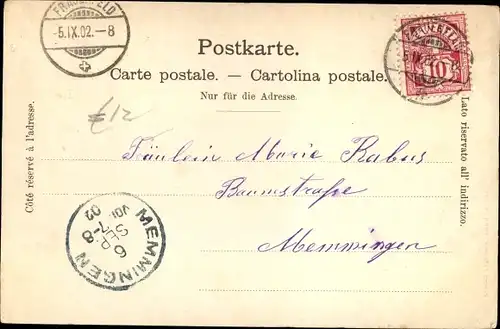 FRAUENFELD
-5.IX.02.-8
Postkarte.
Carte postale. — Cartolina postale.
Nur für die Adresse.
10
€12
Côté réservé à l'adresse.
Lato riservato all' indirizzo.
Fräulein Marie Rabus
Baumstraße
Memmingen
MEMMINGEN
6 SEP.
7-8
VOR
02